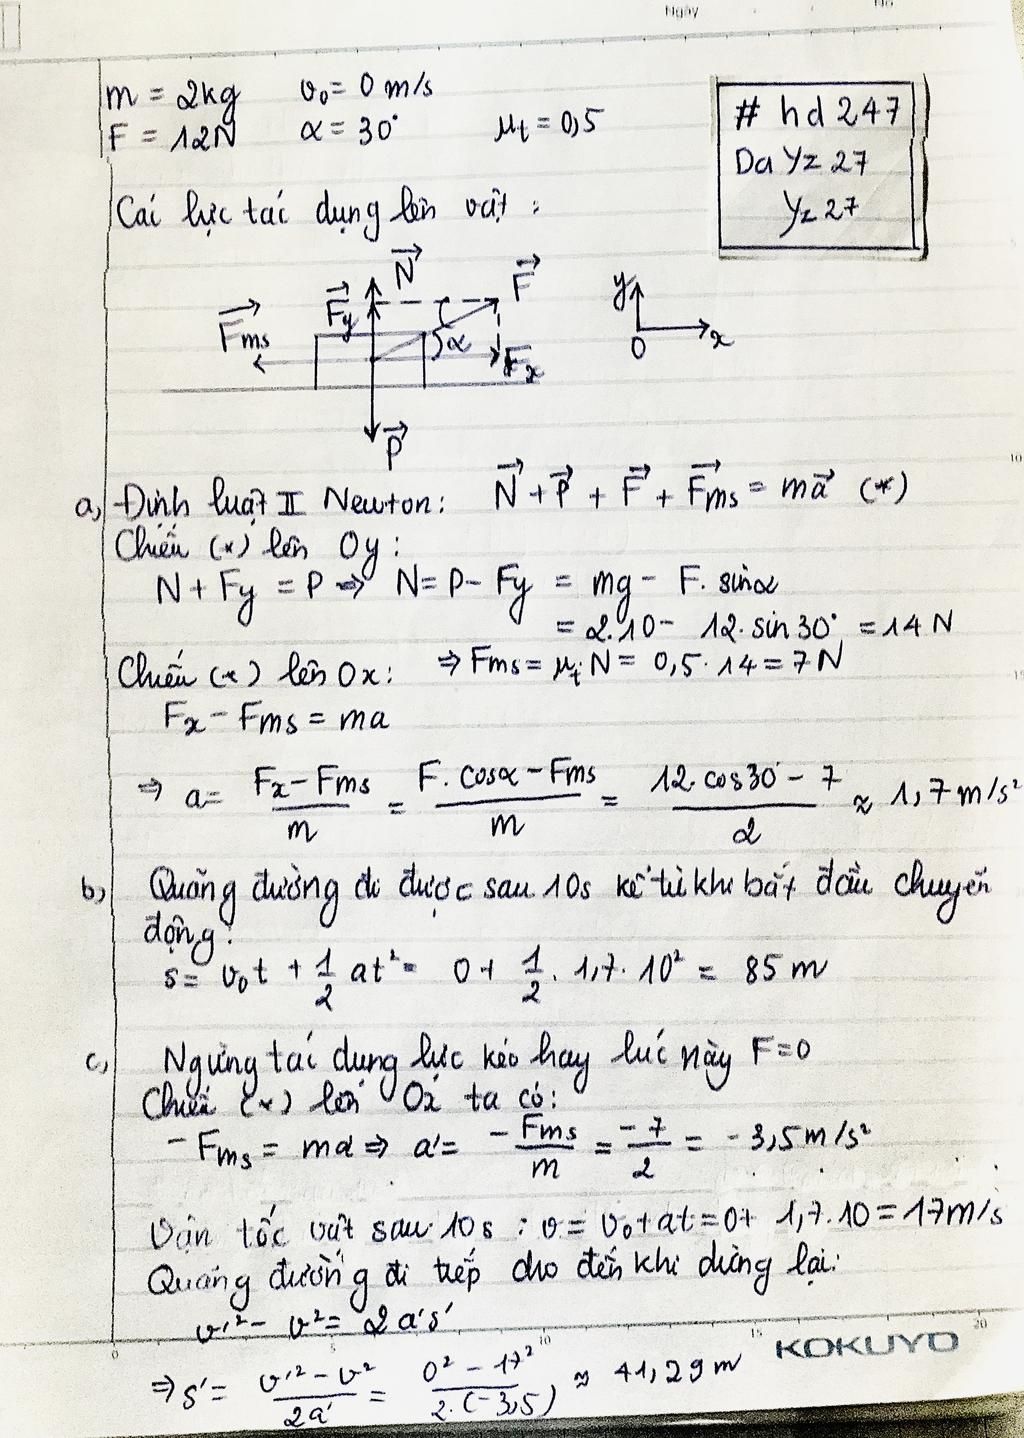 Ngày
No
m = 2kg    v₀ = 0 m/s
F = 12N    α = 30°    μₜ = 0,5
# hd 247
Da Yz 27
Yz 27
Các lực tác dụng lên vật :
N
F
Fy
Fms
α
Fx
P
y
O
x
a, Định luật II Newton: N + P + F + Fms = ma (*)
Chiếu (*) lên Oy :
N + Fy = P ⇒ N = P - Fy = mg - F. sinα
= 2.10 - 12. sin 30° = 14 N
⇒ Fms = μₜ.N = 0,5. 14 = 7N
Chiếu (*) lên Ox:
Fx - Fms = ma
⇒ a = (Fx - Fms)/m = (F. cosα - Fms)/m = (12. cos30 - 7)/2 ≈ 1,7 m/s²
b, Quãng đường đi được sau 10s kể từ khi bắt đầu chuyển
động:
s = v₀t + 1/2 at² = 0 + 1/2. 1,7. 10² = 85 m
c, Ngừng tác dụng lực kéo hay lúc này F = 0
Chiếu (*) lên Ox ta có:
- Fms = ma ⇒ a' = -Fms/m = -7/2 = -3,5 m/s²
Vận tốc vật sau 10s : v = v₀ + at = 0 + 1,7. 10 = 17m/s
Quãng đường đi tiếp cho đến khi dừng lại:
v'² - v² = 2a's'
0 5 10 15 20
KOKUYO
⇒ s' = (v'² - v²)/2a' = (0² - 17²)/2.(-3,5) ≈ 41,29 m